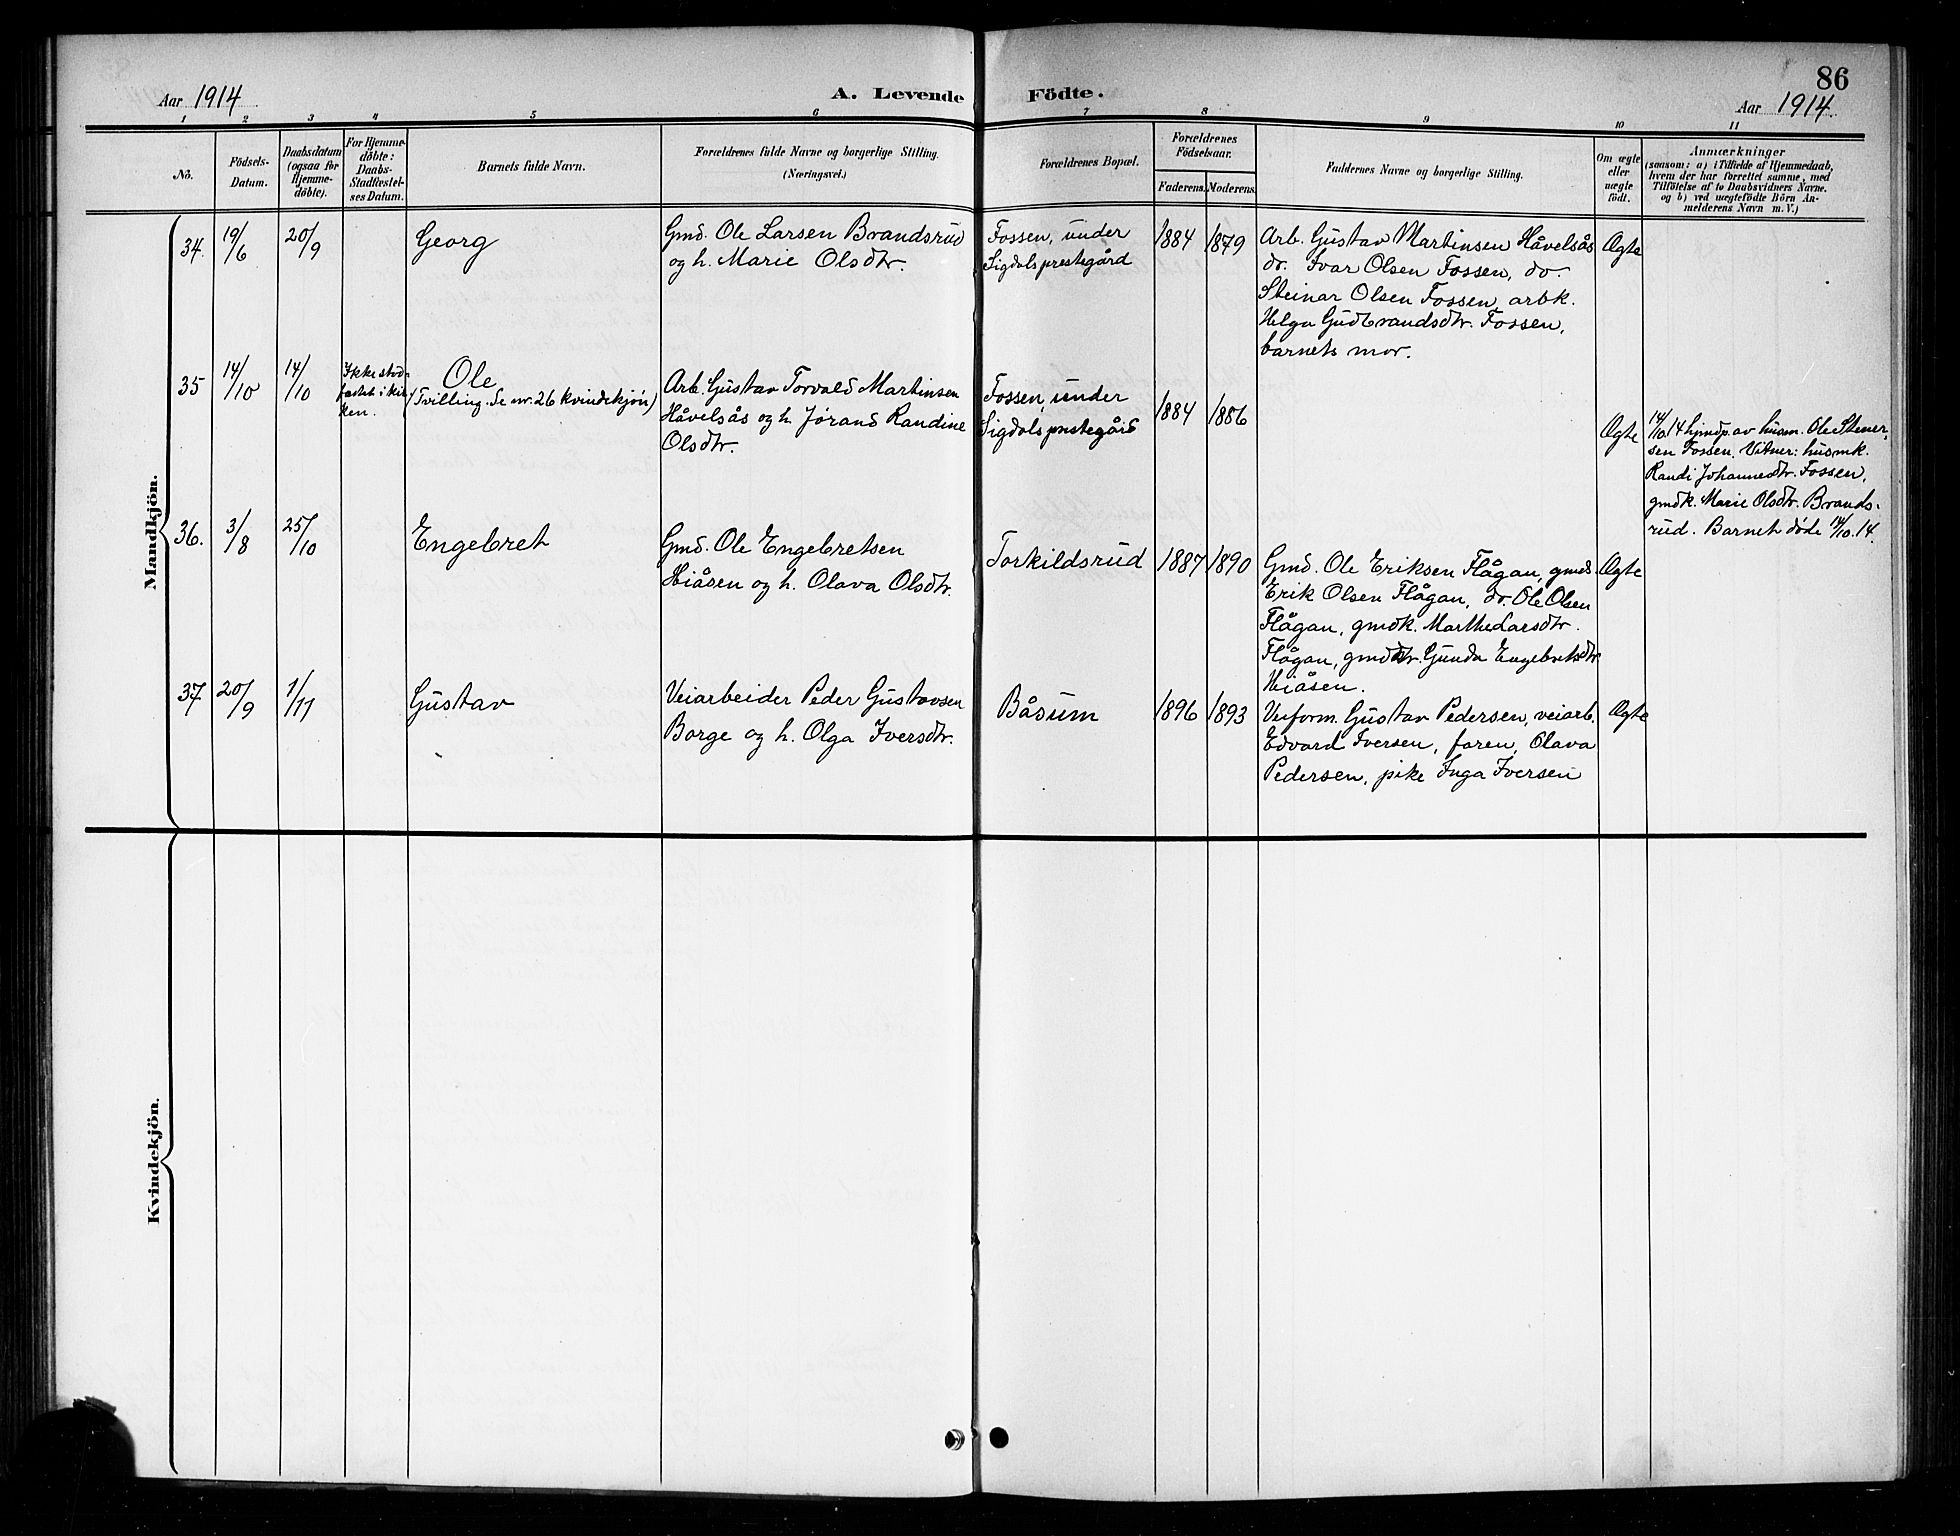 86
Aar 1914
A. Levende Födte.
Aar 1914.
1 2 3 4 5 6 7 8 9 10 11
No.
Födsels-
Datum.
Daabsdatum
(ogsaa for
Hjemme-
döbte).
For Hjemme-
döbte:
Daabs-
Stadfæstel-
ses Datum.
Barnets fulde Navn.
Forældrenes fulde Navne og borgerlige Stilling.
(Næringsvei.)
Forældrenes Bopæl.
Forældrenes
Födselsaar.
Faderens. Moderens.
Faddernes Navne og borgerlige Stilling.
Om ægte
eller
uægte
födt.
Anmærkninger
(saasom: a) i Tilfælde af Hjemmedaab,
hvem der har forrettet samme, med
Tilföielse af to Daabsvidners Navne.
og b) ved uægtefödte Börn An-
melderens Navn m. V.)
Mandkjön.
34. 19/6 20/9
Georg
Gmd. Ole Larsen Brandsrud
og h. Marie Olsdtr.
Fossen, under
Sigdals prestegård
1884 1879
Arb. Gustav Martinsen Håvelsås
do. Ivar Olsen Fossen, do.
Steinar Olsen Fossen, arbk.
Helga Gudbrandsdtr. Fossen,
barnets mor.
Ægte
35 14/10 14/10
Ikke stad-
fæstet i kir-
ken.
Ole
(Tvilling. Se nr. 26 kvindekjøn)
Arb. Gustav Torvald Martinsen
Håvelsås og h. Jørand Randine
Olsdtr.
Fossen, under
Sigdals prestegård
1884 1886
Ægte
14/10.14 hjmdp. av husm. Ole Stener-
sen Fossen. Vitner: husmk.
Randi Johannesdtr. Fossen,
gmdk. Marie Olsdtr. Brands-
rud. Barnet døde 14/10.14.
36. 3/8 25/10
Engebret
Gmd. Ole Engebretsen
Hiåsen og h. Olava Olsdtr.
Torkildsrud
1887 1890
Gmd. Ole Eriksen Flågan, gmds
Erik Olsen Flågan, do. Ole Olsen
Flågan, gmdk. Marthe Larsdtr.
Flågan, gmddtr. Gunda Engebretsdtr.
Hiåsen.
Ægte
37 20/9 1/11
Gustav
Veiarbeider Peder Gustavsen
Borge og h. Olga Iversdtr.
Båsum
1896 1893
Veiform. Gustav Pedersen, veiarb.
Edvard Iversen, faren, Olava
Pedersen, pike Inga Iversen
Ægte
Kvindekjön.